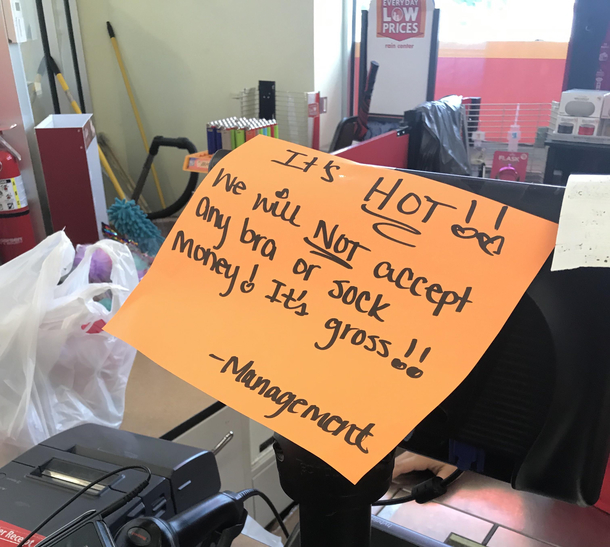 EVERYDAY
LOW
PRICES
rain center
It's HOT!!
We will NOT accept
any bra or sock
money! It's gross!!
-Management